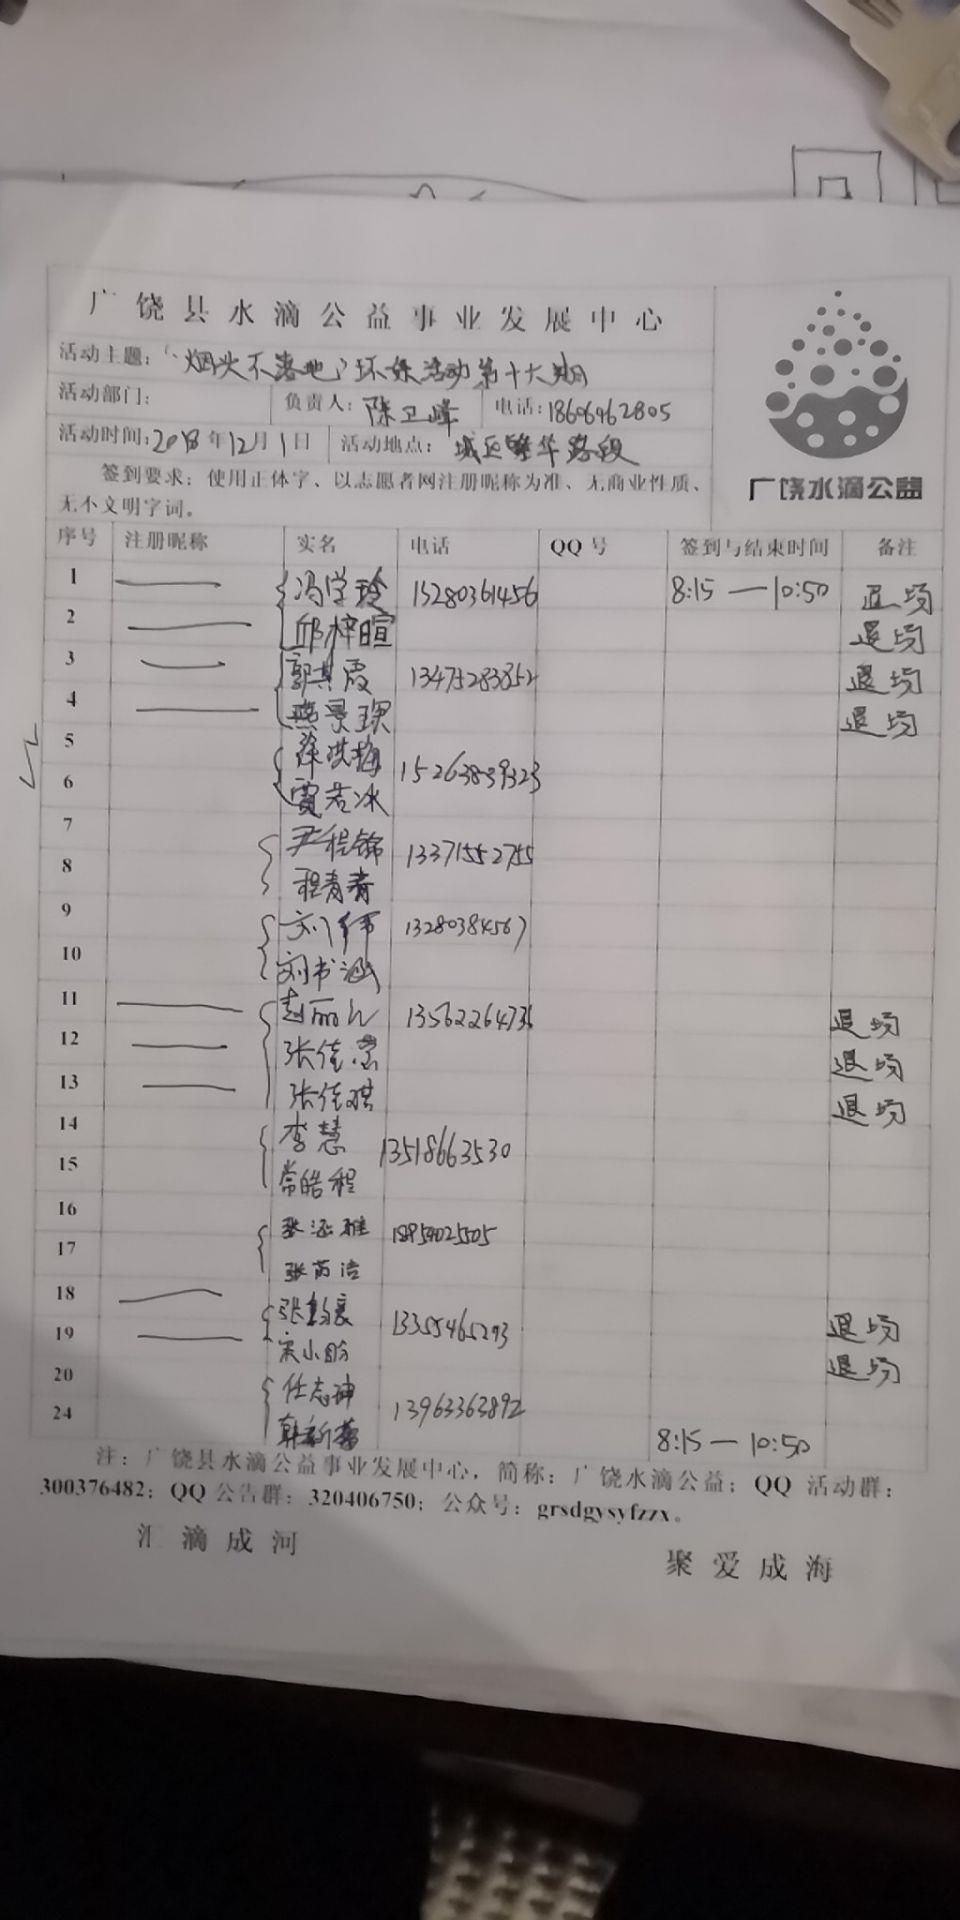 广饶县水滴公益事业发展中心
活动主题：“烟头不落地”环保活动第十六期
活动部门： 负责人：陈卫峰 电话：18606462805
活动时间：2018年12月1日 活动地点：城区繁华路段
签到要求：使用正体字、以志愿者网注册昵称为准、无商业性质、
无不文明字词。
广饶水滴公益
序号 注册昵称 实名 电话 QQ 号 签到与结束时间 备注
1 冯学玲 15280361456 8:15 — 10:50 退场
2 邱梓暄 退场
3 郭其霞 13475283852 退场
4 燕景琪 退场
5 徐洪梅 15263839323
6 贾若冰
7 尹程锦 13371552755
8 程青青
9 刘伟 13280384567
10 刘书涵
11 赵丽 13562264736 退场
12 张佳 退场
13 张佳琪 退场
14 李慧 13518663530
15 常皓程
16 张涵雅
17 张芮洁
18 张 13355465293 退场
19 宋小 退场
20 任志坤 13963363892
24 韩新蕾 8:15 — 10:50
注：广饶县水滴公益事业发展中心，简称：广饶水滴公益；QQ 活动群：
300376482；QQ 公告群：320406750；公众号：grsdgysyfzzx。
汇滴成河 聚爱成海